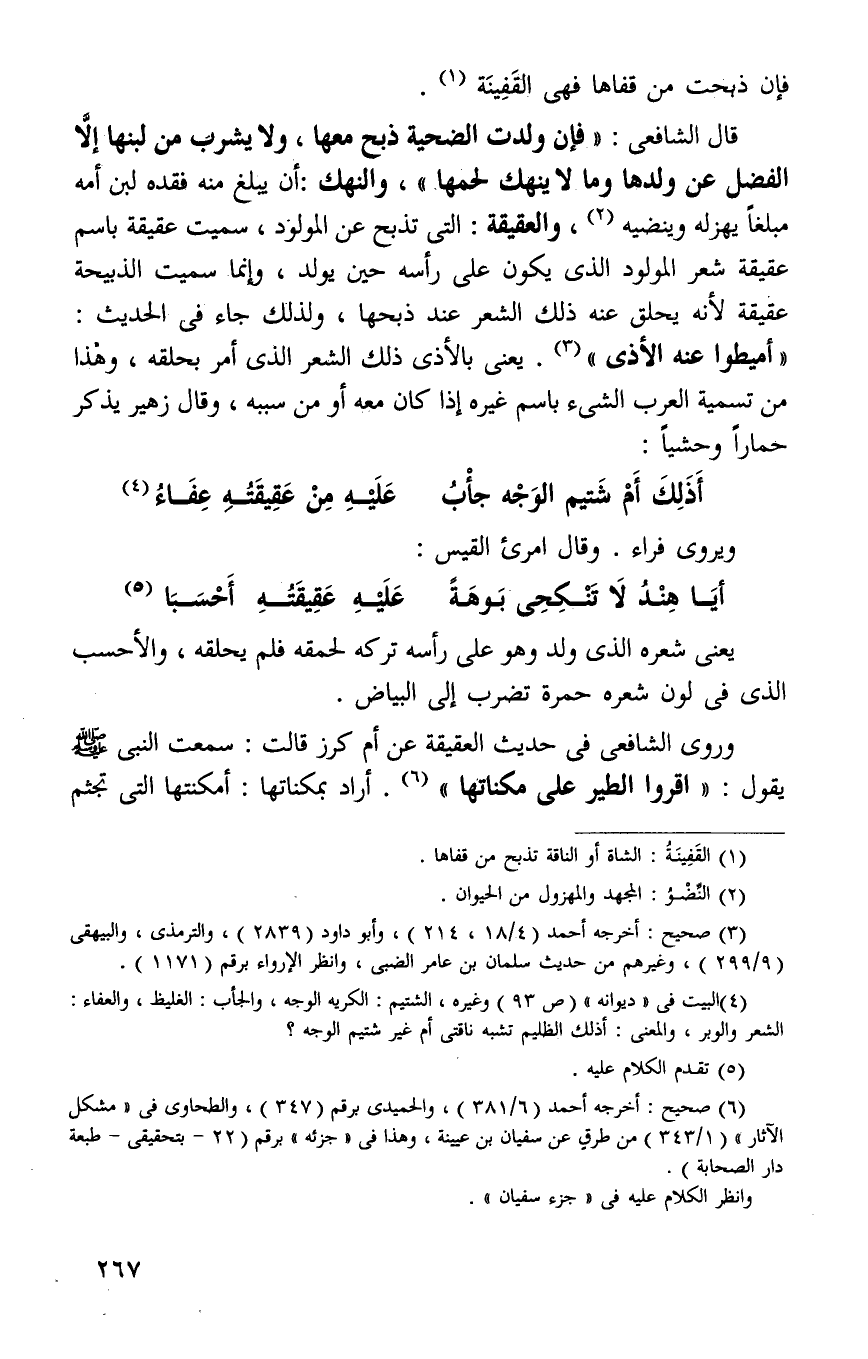 فإن ذبحت من قفاها فهى القَفِينَة (١) .
قال الشافعى : « فإن ولدت الضحية ذبح معها ، ولا يشرب من لبنها إلَّا
الفضل عن ولدها وما لا ينهك لحمها » ، والنهك :أن يبلغ منه فقده لبن أمه
مبلغاً يهزله وينضيه (٢) ، والعقيقة : التى تذبح عن المولود ، سميت عقيقة باسم
عقيقة شعر المولود الذى يكون على رأسه حين يولد ، وإنما سميت الذبيحة
عقيقة لأنه يحلق عنه ذلك الشعر عند ذبحها ، ولذلك جاء فى الحديث :
« أميطوا عنه الأذى » (٣) . يعنى بالأذى ذلك الشعر الذى أمر بحلقه ، وهٰذا
من تسمية العرب الشىء باسم غيره إذا كان معه أو من سببه ، وقال زهير يذكر
حماراً وحشياً :
أَذَلِكَ أَمْ شَتيم الوَجْه جأْبُ عَلَيْـهِ مِنْ عَقِيقَتُـهِ عِفَـاءُ (٤)
ويروى فراء . وقال امرئ القيس :
أيَـا هِنْـدُ لَا تَنْـكِحِى بَـوهَـةً عَلَيْـهِ عَقِيقَتُـهِ أَحْسَـبَا (٥)
يعنى شعره الذى ولد وهو على رأسه تركه لحمقه فلم يحلقه ، والأحسب
الذى فى لون شعره حمرة تضرب إلى البياض .
وروى الشافعى فى حديث العقيقة عن أم كرز قالت : سمعت النبى ﷺ
يقول : « اقروا الطير على مكناتها » (٦) . أراد بمكناتها : أمكنتها التى تجثم
(١) القَفِينَةُ : الشاة أو الناقة تذبح من قفاها .
(٢) النِّضْـوُ : المجهد والمهزول من الحيوان .
(٣) صحيح : أخرجه أحمد ( ١٨/٤ ، ٢١٤ ) ، وأبو داود ( ٢٨٣٩ ) ، والترمذى ، والبيهقى
( ٢٩٩/٩ ) ، وغيرهم من حديث سلمان بن عامر الضبى ، وانظر الإرواء برقم ( ١١٧١ ) .
(٤)البيت فى « ديوانه » ( ص ٩٣ ) وغيره ، الشتيم : الكريه الوجه ، والجأب : الغليظ ، والعفاء :
الشعر والوبر ، والمعنى : أذلك الظليم تشبه ناقتى أم غير شتيم الوجه ؟
(٥) تقدم الكلام عليه .
(٦) صحيح : أخرجه أحمد ( ٣٨١/٦ ) ، والحميدى برقم ( ٣٤٧ ) ، والطحاوى فى « مشكل
الآثار » ( ٣٤٣/١ ) من طرق عن سفيان بن عيينة ، وهذا فى « جزئه » برقم ( ٢٢ - بتحقيقى - طبعة
دار الصحابة ) .
وانظر الكلام عليه فى « جزء سفيان » .
٢٦٧